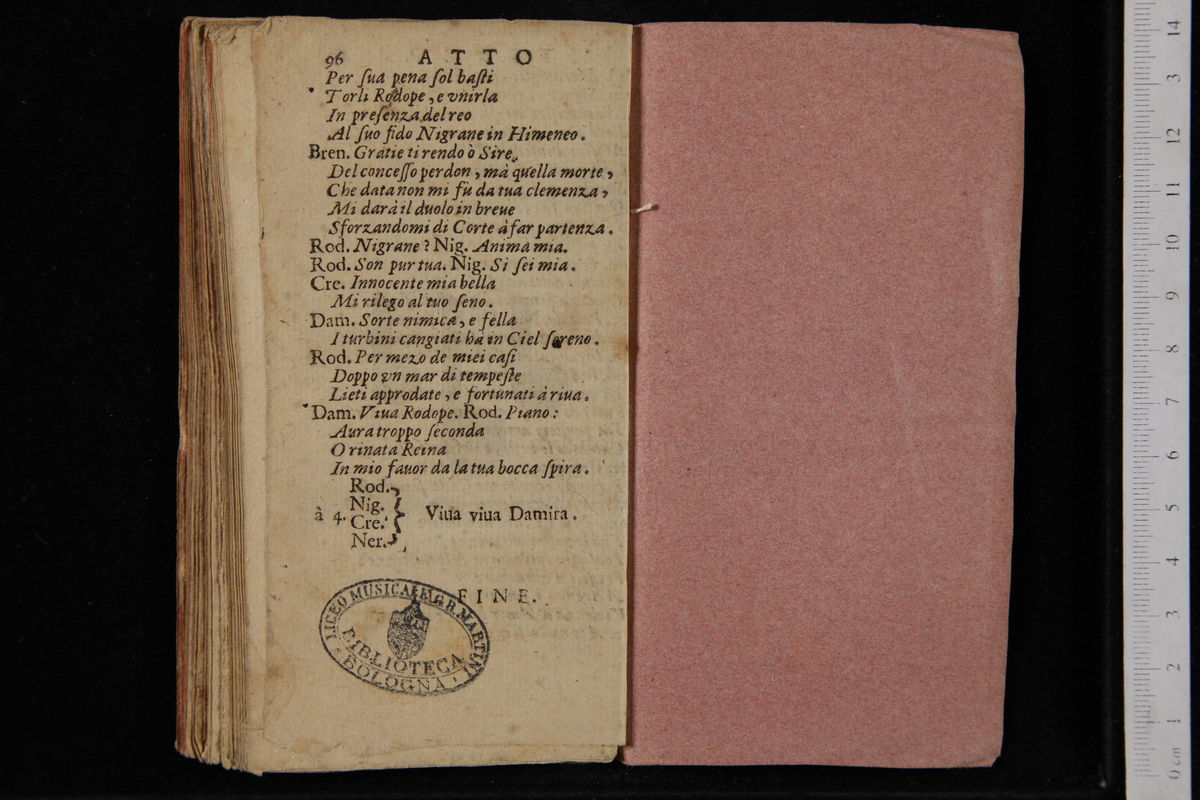 96 ATTO
Per ſua pena ſol baſti
Torli Rodope, e vnirla
In preſenza del reo
Al ſuo fido Nigrane in Himeneo.
Bren. Gratie ti rendo ò Sire,
Del conceſſo perdon, mà quella morte,
Che data non mi fù da tua clemenza,
Mi darà il duolo in breue
Sforzandomi di Corte à far partenza.
Rod. Nigrane? Nig. Anima mia.
Rod. Son pur tua. Nig. Si ſei mia.
Cre. Innocente mia bella
Mi rilego al tuo ſeno.
Dam. Sorte nimica, e fella
I turbini cangiati ha in Ciel ſereno.
Rod. Per mezo de miei caſi
Doppo vn mar di tempeſte
Lieti approdate, e fortunati à riua.
Dam. Viua Rodope. Rod. Piano:
Aura troppo ſeconda
O rinata Reina
In mio fauor da la tua bocca ſpira.
Rod.
Nig.
à 4. Cre. Viua viua Damira.
Ner.
FINE.
LICEO MUSICALE G. B. MARTINI
BIBLIOTECA
BOLOGNA
0 cm 1 2 3 4 5 6 7 8 9 10 11 12 13 14